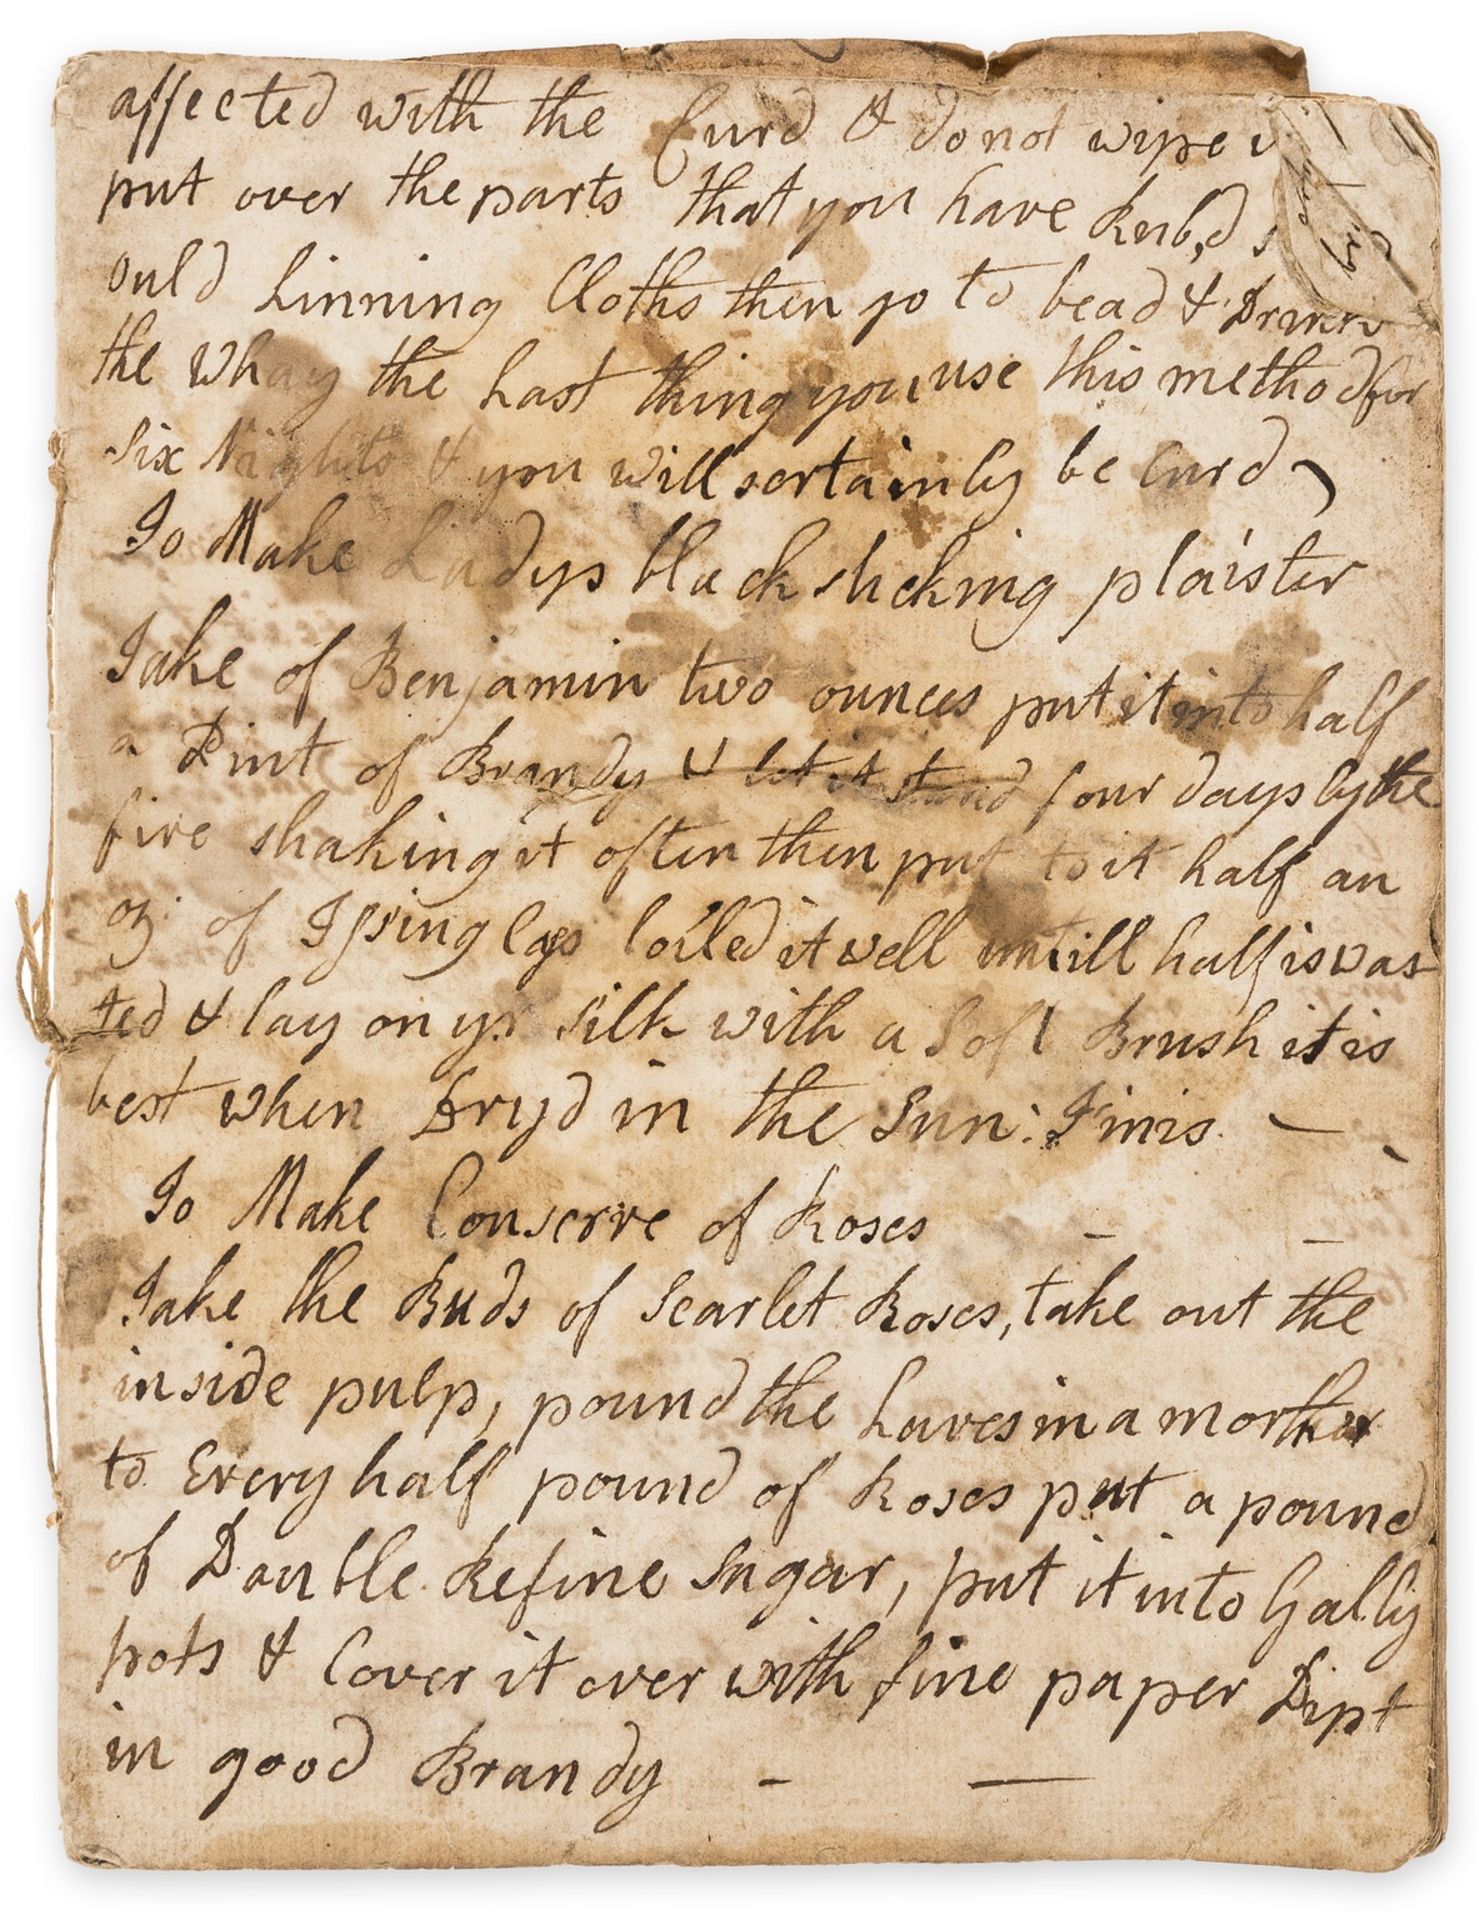 affected with the Curd & do not wipe
put over the parts that you have Rub,d
ould Linning Cloths then go to bead & Drink
the Whay the Last thing you use this method for
six Nights & you will sertainly be Curd
To Make Ladys black sticking plaister
Take of Benjamin two ounces put it into half
a Pint of Brandy & let it stand four days by the
fire shaking it often then put to it half an
oz. of Issinglass boiled it well untill half is was
ted & lay on yr silk with a Soft Brush it is
best when Dryd in the Sun: Finis —
To Make Conserve of Roses - -
Take the Buds of Scarlet Roses, take out the
inside pulp, pound the Laves in a morther
to Every half pound of Roses put a pound
of Double Refine Sugar, put it into Gally
pots & Cover it over with fine paper Dipt
in good Brandy - —